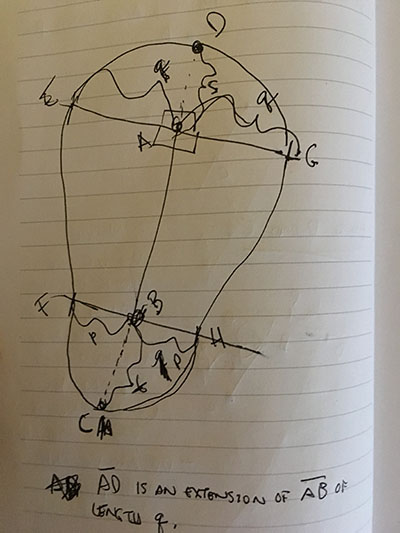 D
E
q
S
q
A
G
F
B
P
H
P
t
C
AD IS AN EXTENSION OF AB OF
LENGTH q.